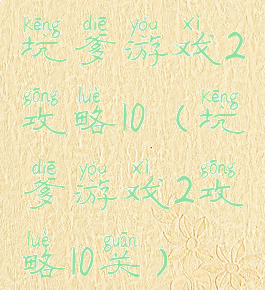 kēng diē yóu xì
坑爹游戏2
gōng lüè kēng
攻略10（坑
diē yóu xì gōng
爹游戏2攻
lüè guān
略10关）